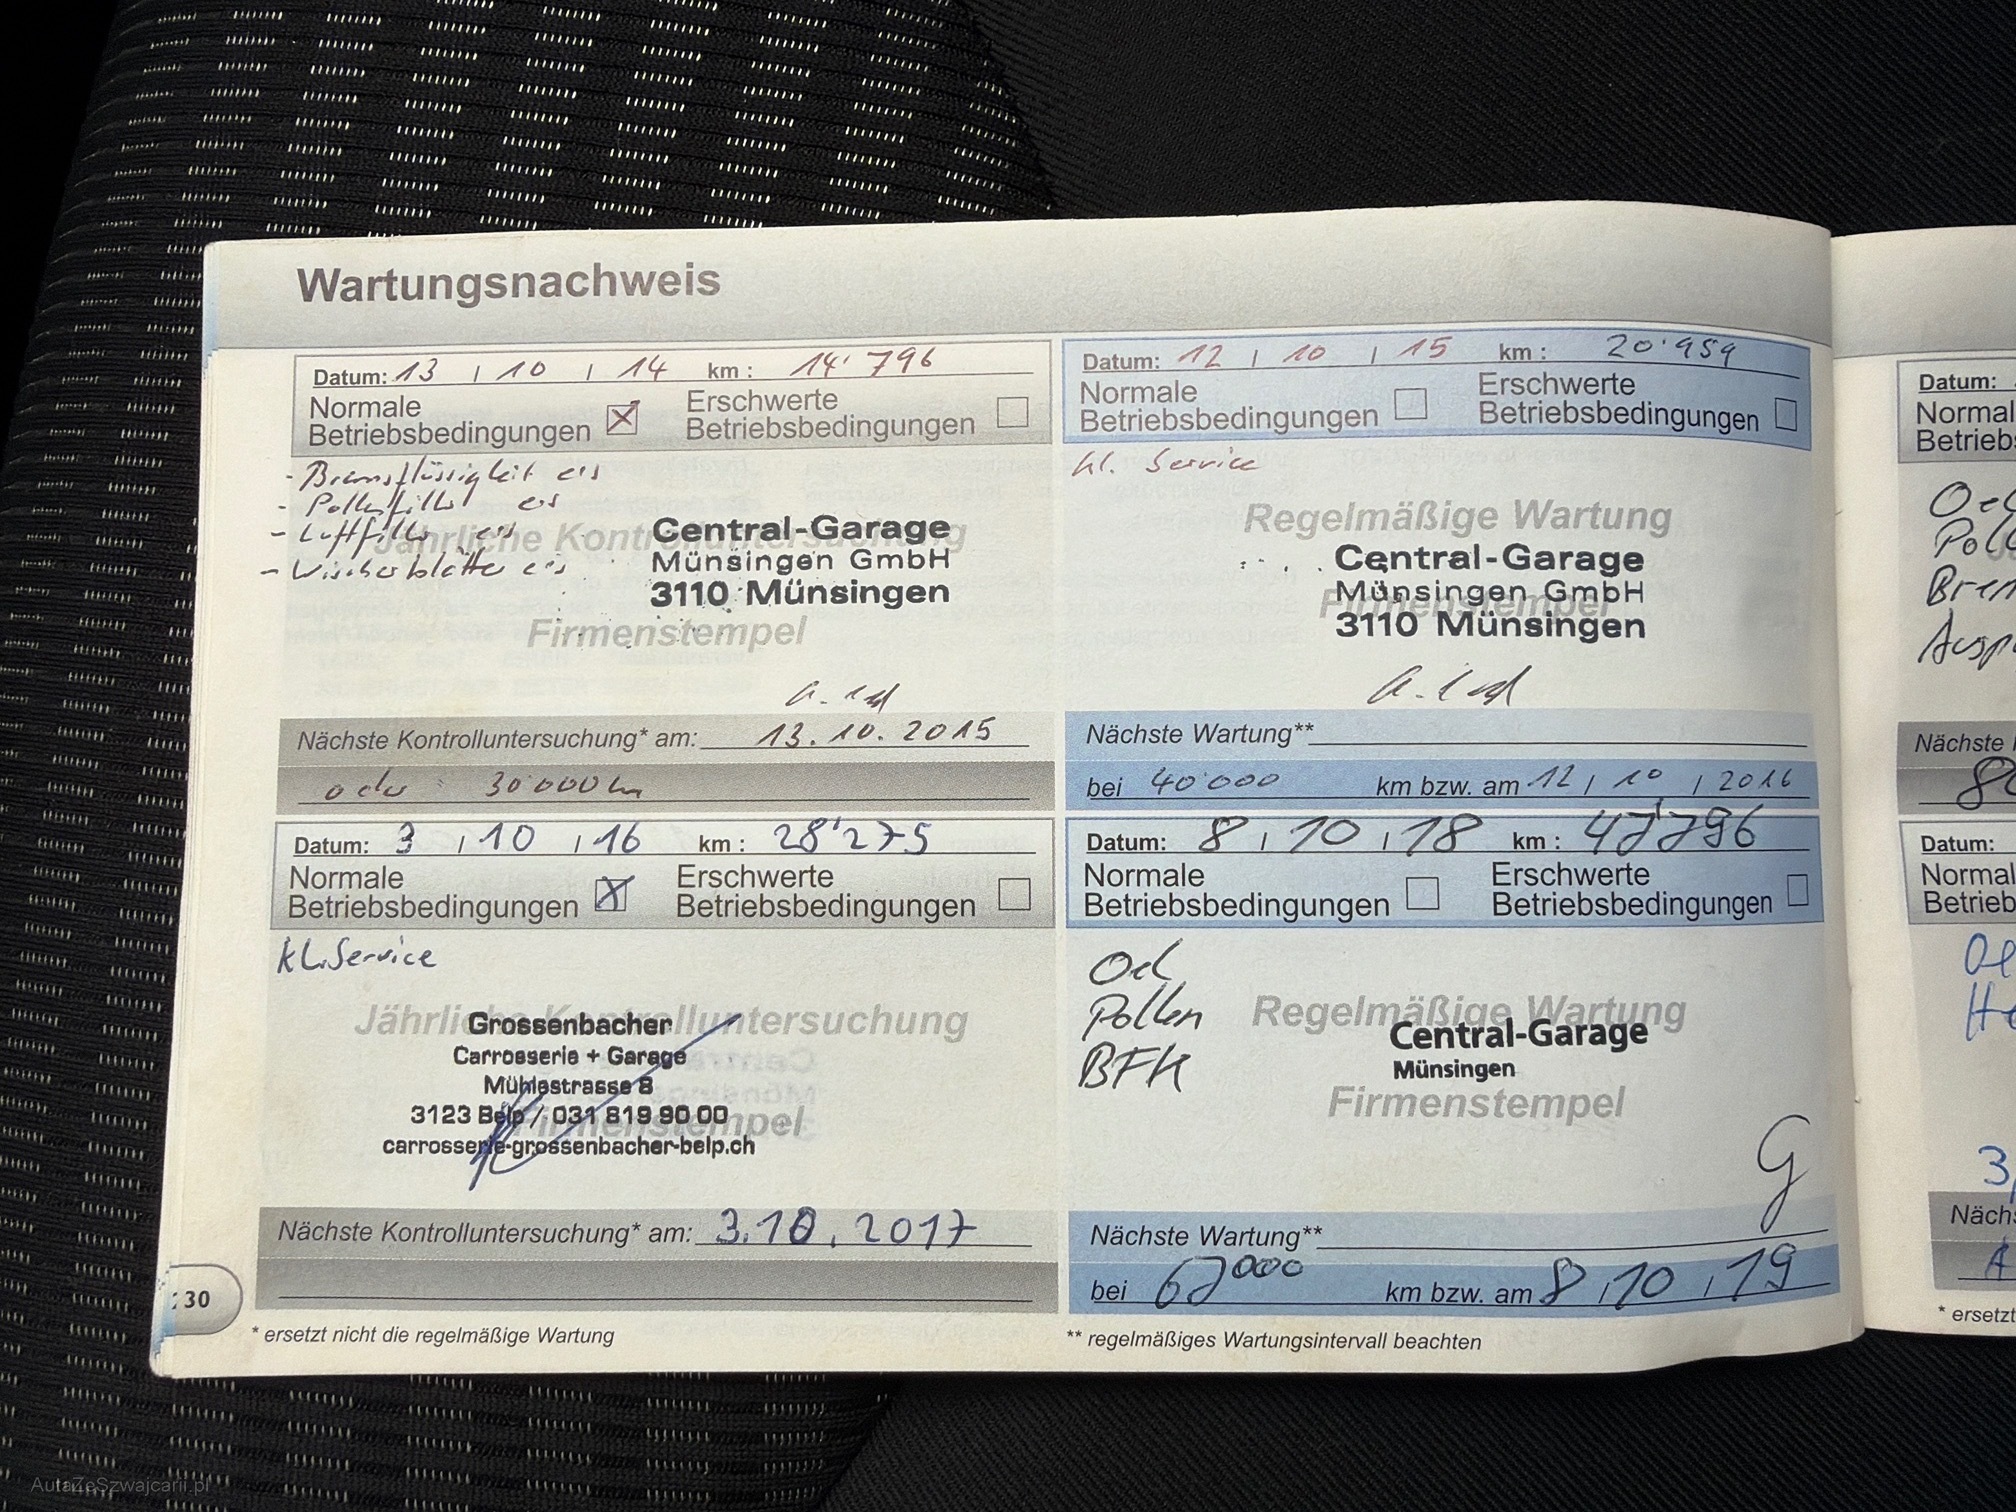 Wartungsnachweis
Datum: 13 / 10 / 14 km : 14'796
Normale
Betriebsbedingungen
Erschwerte
Betriebsbedingungen
- Bremsflüssigkeit ers
- Pollenfilter ers
- Luftfilter ers
- Wischerblätter ers
Jährliche Kontrolluntersuchung
Central-Garage
Münsingen GmbH
3110 Münsingen
Firmenstempel
Nächste Kontrolluntersuchung* am: 13.10.2015
oder 30'000 km
Datum: 12 / 10 / 15 km : 20'959
Normale
Betriebsbedingungen
Erschwerte
Betriebsbedingungen
kl. Service
Regelmäßige Wartung
Central-Garage
Münsingen GmbH
Firmenstempel
3110 Münsingen
Nächste Wartung**
bei 40'000 km bzw. am 12 / 10 / 2016
Datum: 3 / 10 / 16 km : 28'275
Normale
Betriebsbedingungen
Erschwerte
Betriebsbedingungen
kl. Service
Jährliche Kontrolluntersuchung
Grossenbacher
Carrosserie + Garage
Mühlestrasse 8
3123 Belp / 031 819 90 00
Firmenstempel
carrosserie-grossenbacher-belp.ch
Nächste Kontrolluntersuchung* am: 3.10.2017
Datum: 8 / 10 / 18 km : 47'796
Normale
Betriebsbedingungen
Erschwerte
Betriebsbedingungen
Oel
Pollen
BFK
Regelmäßige Wartung
Central-Garage
Münsingen
Firmenstempel
G
Nächste Wartung**
bei 67000 km bzw. am 8 / 10 / 19
30
* ersetzt nicht die regelmäßige Wartung
** regelmäßiges Wartungsintervall beachten
Datum:
Normal
Betriebs
Oel
Poll
Brem
Ausp
Nächste
Datum:
Normal
Betrieb
Oe
He
3,
Nächs
* ersetzt
AutaZeSzwajcarii.pl